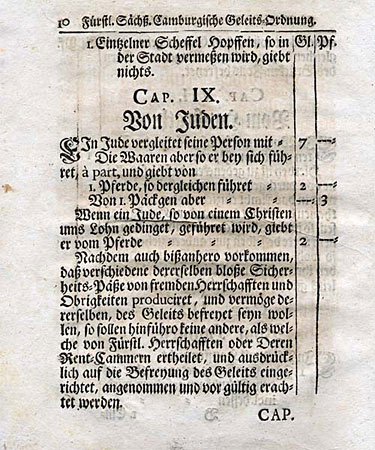 10 Fürstl. Sächß. Camburgische Geleits-Ordnung.
1. Eintzelner Scheffel Hopffen, so in Gl. Pf.
der Stadt vermeßen wird, giebt
nichts.
CAP. IX.
Von Juden.
EIn Jude vergleitet seine Person mit - 7 —-
Die Waaren aber so er bey sich füh-
ret, à part, und giebt von
1. Pferde, so dergleichen führet - 2 —-
Von 1. Päckgen aber - —- 3
Wenn ein Jude, so von einem Christen
ums Lohn gedinget, geführet wird, giebt
er vom Pferde - - - - 2 —-
Nachdem auch bißanhero vorkommen,
daß verschiedene dererselben bloße Sicher-
heits-Päße von fremden Herrschafften und
Obrigkeiten produciret, und vermöge de-
rerselben, des Geleits befreyet seyn wol-
len, so sollen hinführo keine andere, als wel-
che von Fürstl. Herrschafften oder Deren
Rent-Cammern ertheilet, und ausdrück-
lich auf die Befreyung des Geleits einge-
richtet, angenommen und vor gültig erach-
tet werden.
CAP.